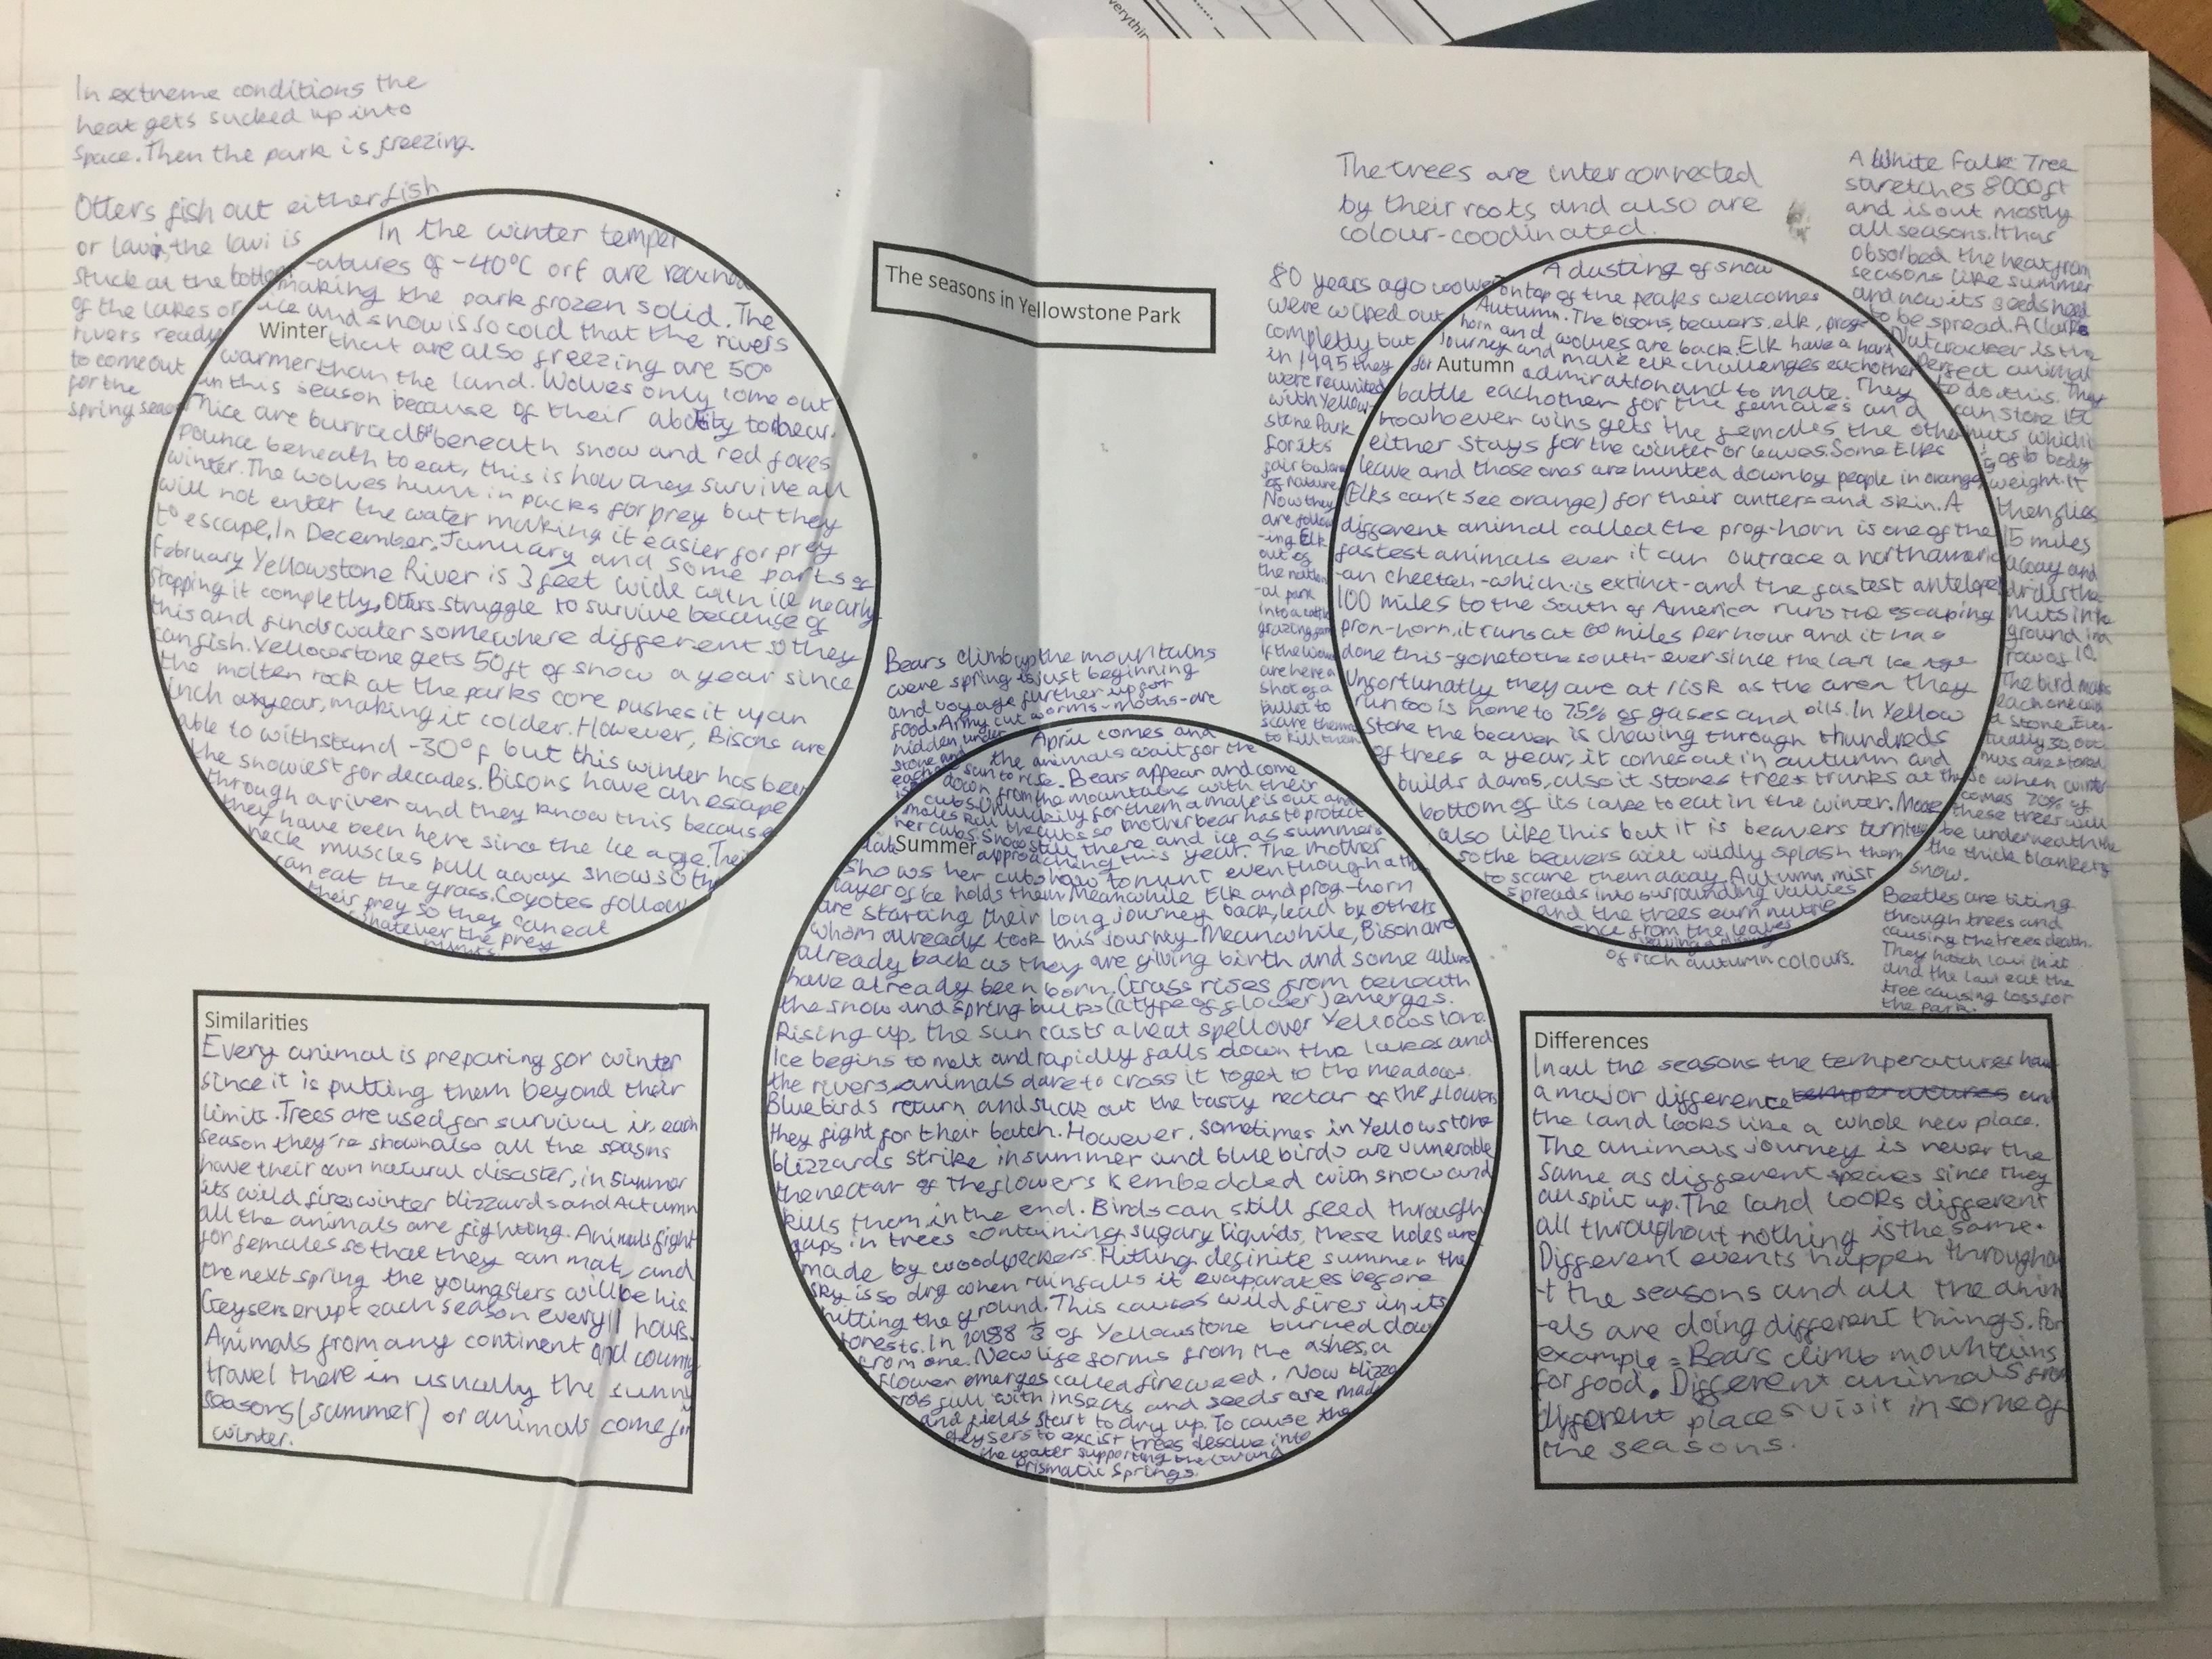 In extreme conditions the
heat gets sucked up into
Space. Then the park is freezing.
Otters fish out either fish
or lavi, the lavi is
stuck at the bottom
of the lakes or
rivers ready
to come out
for the
spring season
In the winter temper
-atures of -40°C orf are reached
making the park frozen solid. The
ice and snow is so cold that the rivers
Winter
that are also freezing are 50°
warmer than the land. Wolves only come out
in this season because of their ability to bear.
Mice are burred beneath snow and red foxes
pounce beneath to eat, this is how they survive all
winter. The wolves hunt in packs for prey but they
will not enter the water making it easier for prey
to escape, In December, January and some parts of
February Yellowstone River is 3 feet wide with ice nearly
stopping it completly, Otters struggle to survive because of
this and finds water somewhere different so they
can fish. Yellowstone gets 50ft of snow a year since
the molten rock at the parks core pushes it up an
inch a year, making it colder. However, Bisons are
able to withstand -30°f but this winter has been
the snowiest for decades. Bisons have an escape
through a river and they know this because
they have been here since the Ice age. Their
neck muscles pull away snow so they
can eat the grass. Coyotes follow
their prey so they can eat
whatever the prey
The seasons in Yellowstone Park
The trees are interconnected
by their roots and also are
colour-coodinated.
A White Falk Tree
stretches 8000ft
and is out mostly
all seasons. It has
obsorbed the heat from
seasons like summer
and now its seeds need
to be spread. A Clarks
Nutcracker is the
perfect animal
to do this. They
can store 150
nuts which
is of its body
weight. It
then flies
15 miles
away and
drills the
nuts into
ground in a
row of 10.
The bird
each one with
a stone.
nuts are stored
so when winter
comes 70% of
these trees will
be underneath the
the thick blanket
snow.
80 years ago wolves
were wiped out
completly but
in 1995 they
were reunited
with Yellow-
stone Park
for its
fair balance
of nature.
Now they
are follow
-ing Elk
out of
the nation
-al park
into a cattle
grazing
If the wolves
are here a
shot of a
bullet to
scare them
to kill them
A dusting of snow
on top of the peaks welcomes
Autumn. The bisons, beavers, elk, prog-
horn and wolves are back. Elk have a hard
journey and male elk challenges eachother
for
Autumn
admiration and to mate. They
battle eachother for the females and
who ever wins gets the females the other
either stays for the winter or leaves. Some Elks
leave and those ones are hunted down by people in orange
(Elks can't see orange) for their antlers and skin. A
different animal called the prog-horn is one of the
fastest animals ever it can outrace a northameric
-an cheetah-which is extinct-and the fastest antelope
100 miles to the South of America runs the escaping
pron-horn, it runs at 60 miles per hour and it has
done this-gone to the south-ever since the last Ice Age
Unfortunatly they are at risk as the area they
run too is home to 75% of gases and oils. In Yellow
Stone the beaver is chewing through thundreds
of trees a year, it comes out in autumn and
builds dams, also it stores trees trunks at the
bottom of its lake to eat in the winter. Moose
also like this but it is beavers
so the beavers will wildly splash them
to scare them away. Autumn mist
spreads into surrounding vallies
and the trees earn nutrie
-nce from the leaves
of rich autumn colours.
Beetles are biting
through trees and
causing the trees death.
They hatch lavi in it
and the lavi eat the
tree causing loss for
the park.
Bears climb up the mountains
were spring is just beginning
and voyage further up for
food. Army cut worms-moths-are
hidden under
stone and
April comes and
the animals wait for the
sun to rise. Bears appear and come
down from the mountains with their
cubs. Unluckily for them a male is out and
males kill the cubs so mother bear has to protect
her cubs. Snow still there and ice as summers
late
Summer
approaching this year. The mother
shows her cubs how to hunt even though a thin
layer of ice holds them. Meanwhile Elk and prog-horn
are starting their long journey back, lead by others
whom already took this journey. Meanwhile, Bison are
already back as they are giving birth and some
have already been born. Grass rises from beneath
the snow and spring bulbs (a type of flower) emerges.
Rising up, the sun casts a heat spell over Yellowstone.
Ice begins to melt and rapidly falls down the lakes and
the rivers, animals dare to cross it to get to the meadows.
Bluebirds return and suck out the tasty nectar of the flowers
they fight for their batch. However, sometimes in Yellowstone
blizzards strike in summer and bluebirds are vunerable
the nectar of the flowers is embedded with snow and
kills them in the end. Birds can still feed through
gaps in trees containing sugary liquids, these holes are
made by woodpeckers. Hitting definite summer the
sky is so dry when rain falls it evaparates before
hitting the ground. This causes wild fires in its
forests. In 1988 1/3 of Yellowstone burned down
from one. New life forms from the ashes, a
flower emerges called fireweed. Now blizza
-rds full with insects and seeds are made
and fields start to dry up. To cause the
geysers to excist trees desolve into
the water supporting the
Prismatic Springs.
Similarities
Every animal is preparing for winter
since it is putting them beyond their
limits. Trees are used for survival in each
season they're shown also all the seasons
have their own natural disaster, in summer
its wild fires, winter blizzards and Autumn
all the animals are fighting. Animals fight
for females so that they can mate and
the next spring the youngsters will be his
Geysers erupt each season every 11 hours.
Animals from any continent and county
travel there in usually the sunny
seasons (summer) or animals come for
winter.
Differences
In all the seasons the temperatures have
a major difference temperatures and
the land looks like a whole new place.
The animals journey is never the
same as different species since they
all split up. The land looks different
all throughout nothing is the same.
Different events happen throughou
-t the seasons and all the anim
-als are doing different things. For
example = Bears climb mountains
for food. Different animals from
different places visit in some of
the seasons.